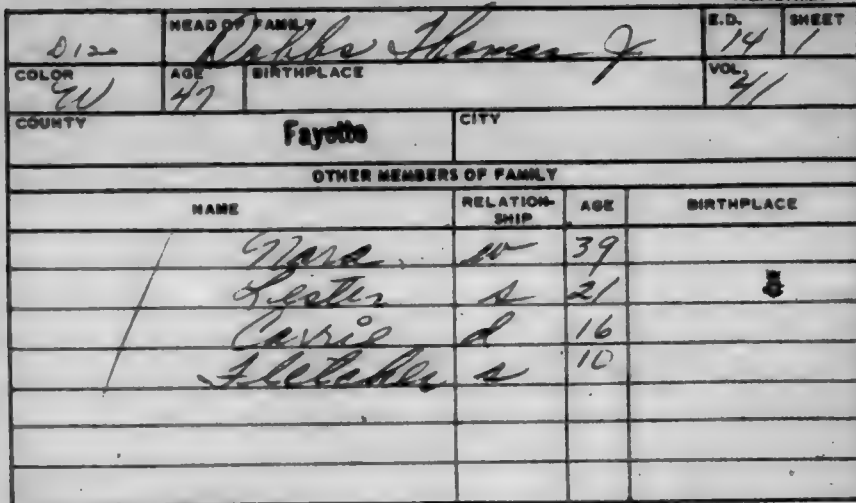 HEAD OF FAMILY E.D. SHEET
D120 Dobbs Thomas J. 14 1
COLOR AGE BIRTHPLACE VOL.
W 47 41
COUNTY Fayette CITY
OTHER MEMBERS OF FAMILY
NAME RELATION-SHIP AGE BIRTHPLACE
Nora w 39
Lester s 21
Carrie d 16
Fletcher s 10